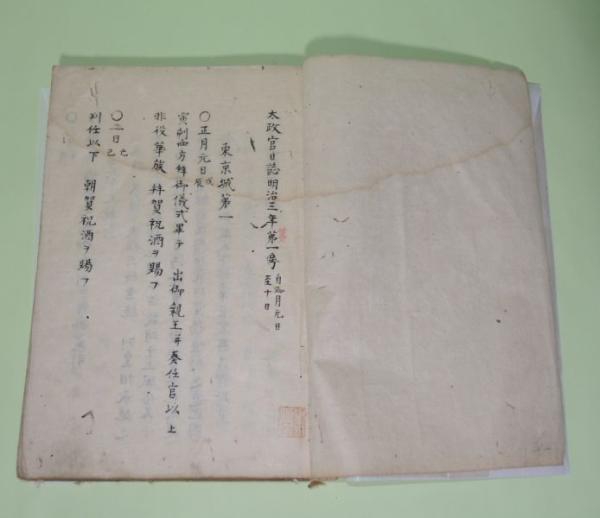 太政官日誌明治三年第一号 自正月元日至十日
東京城第一
〇正月元日戊辰
寅刻四方拝御儀式畢テ 出御親王并奏任官以上
非役華族 拝賀祝酒ヲ賜フ
〇二日己巳
判任以下 朝賀祝酒ヲ賜フ